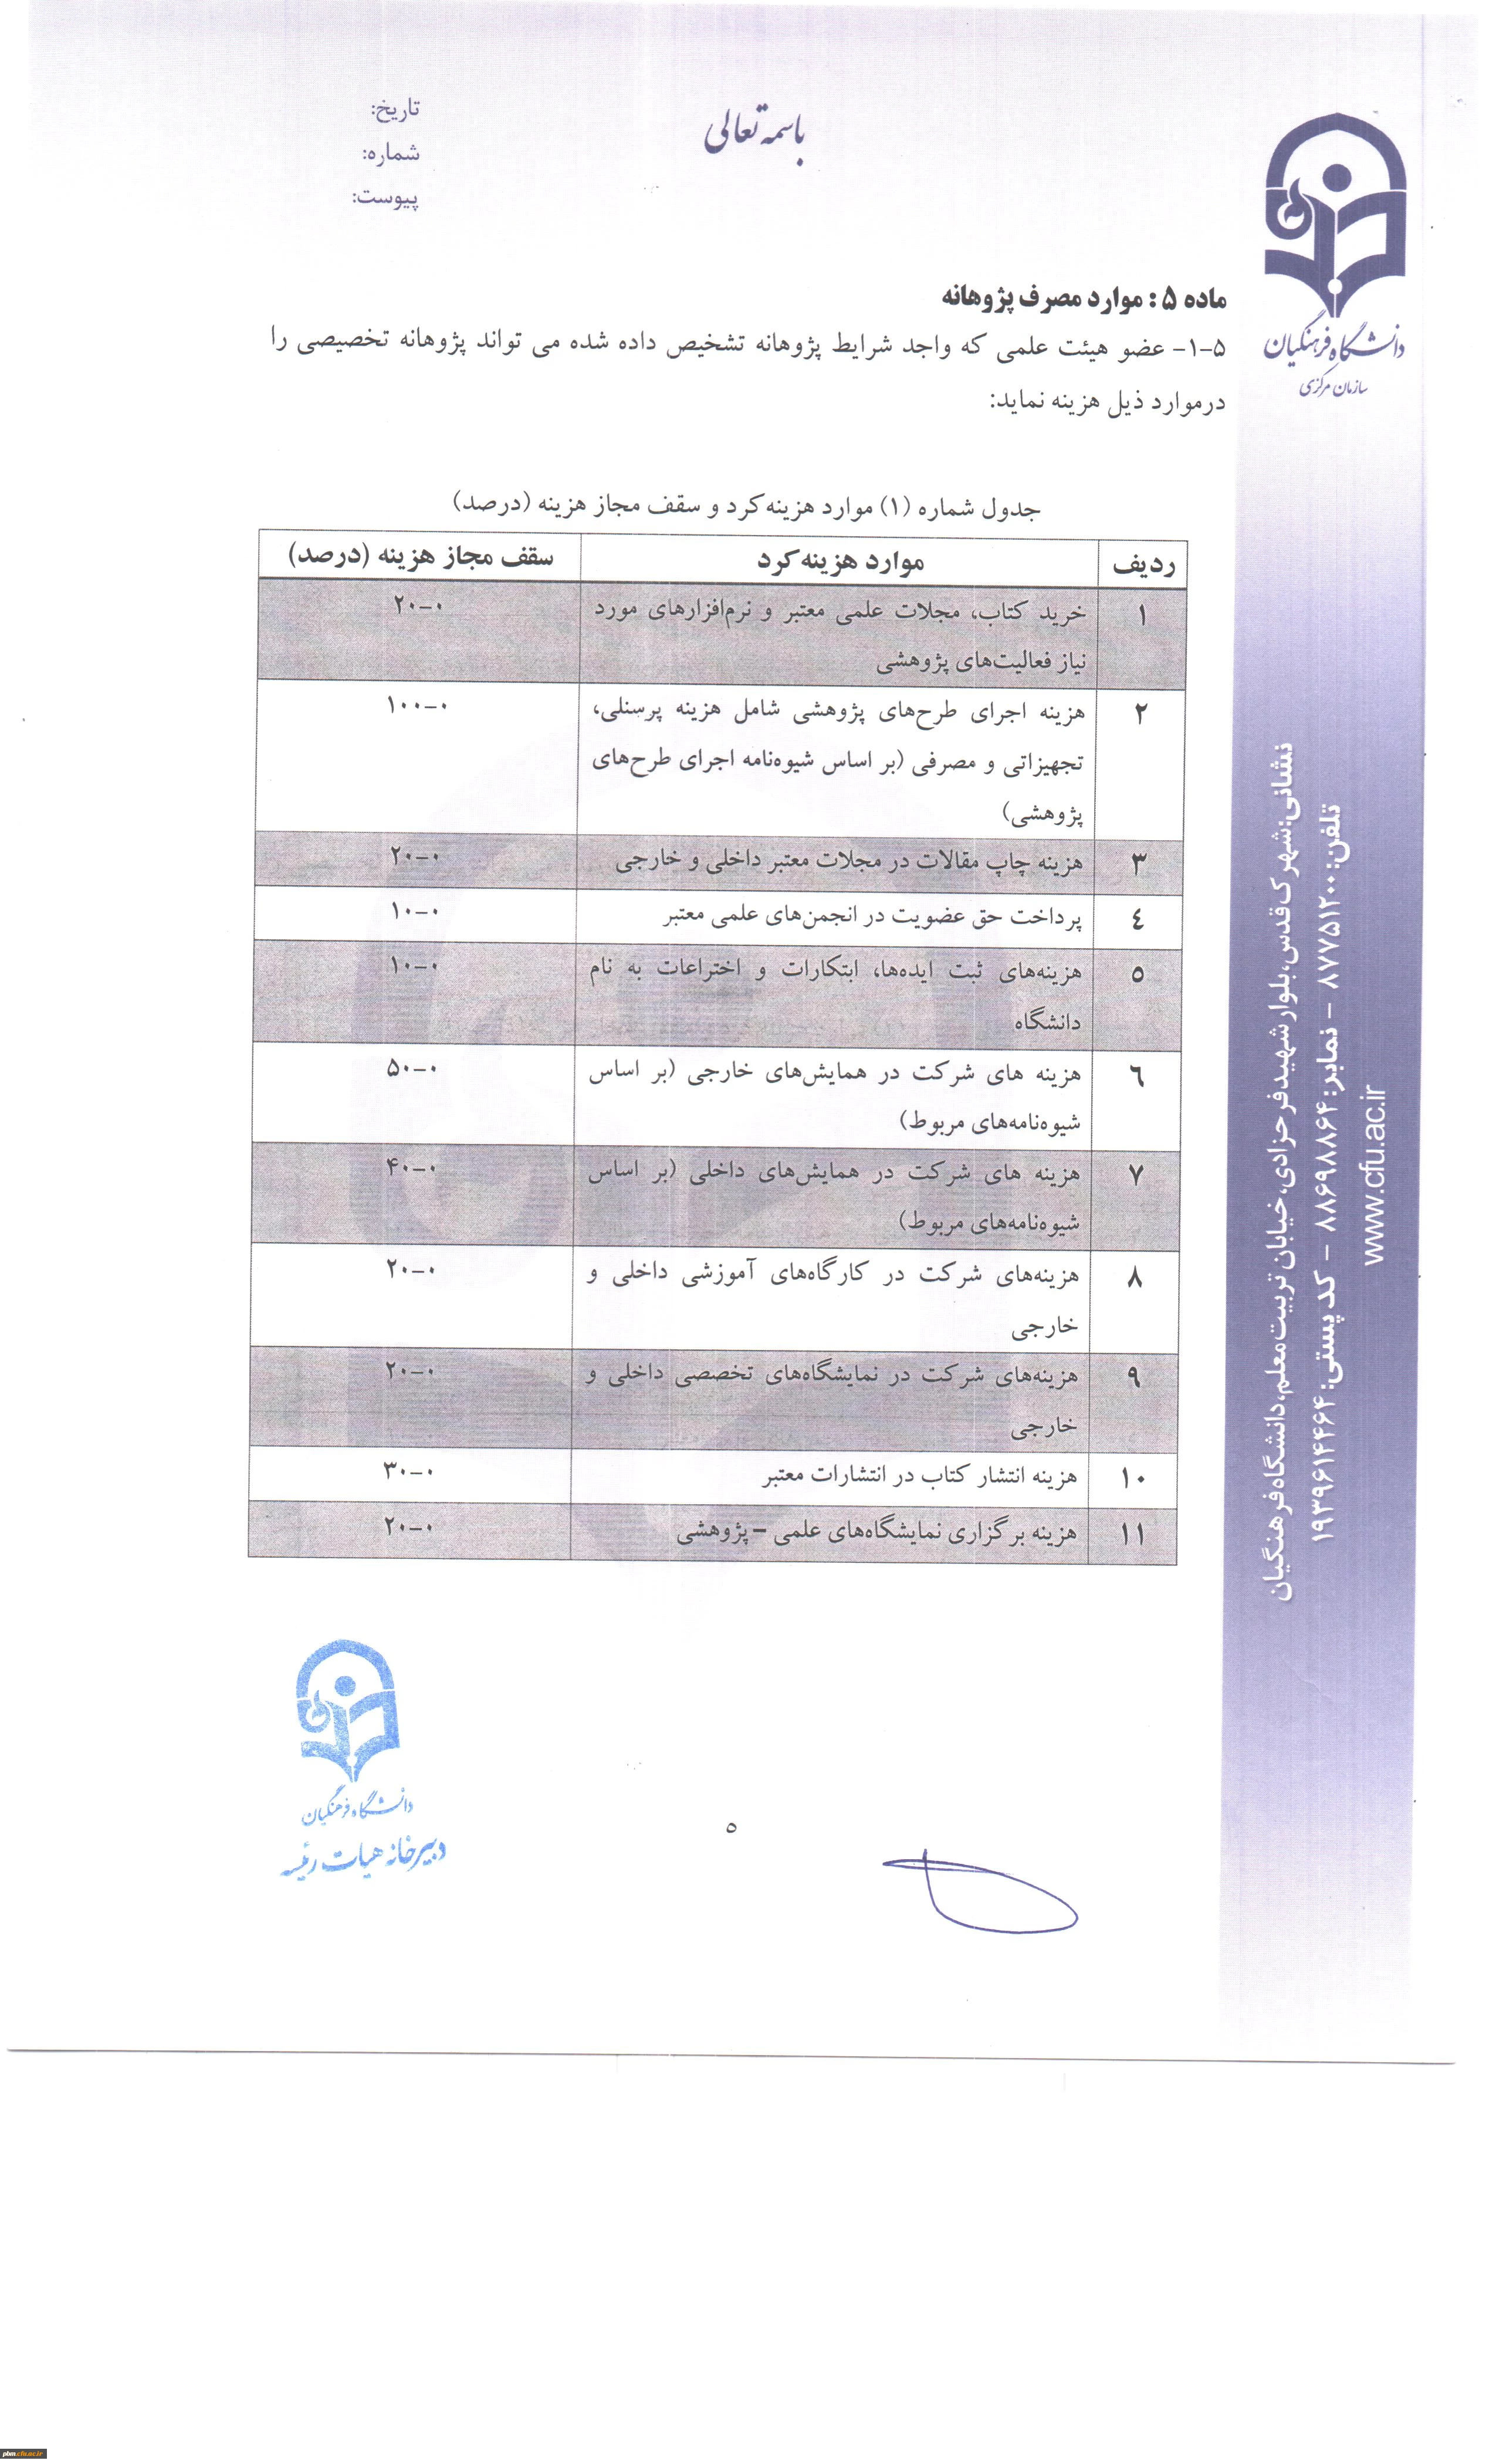 باسمه تعالی
تاریخ:
شماره:
پیوست:
دانشگاه فرهنگیان
سازمان مرکزی
ماده ۵ : موارد مصرف پژوهانه
۵-۱- عضو هیئت علمی که واجد شرایط پژوهانه تشخیص داده شده می تواند پژوهانه تخصیصی را
درموارد ذیل هزینه نماید:
جدول شماره (۱) موارد هزینه‌کرد و سقف مجاز هزینه (درصد)
ردیف موارد هزینه‌کرد سقف مجاز هزینه (درصد)
۱ خرید کتاب، مجلات علمی معتبر و نرم‌افزارهای مورد ۰-۲۰
نیاز فعالیت‌های پژوهشی
۲ هزینه اجرای طرح‌های پژوهشی شامل هزینه پرسنلی، ۰-۱۰۰
تجهیزاتی و مصرفی (بر اساس شیوه‌نامه اجرای طرح‌های
پژوهشی)
۳ هزینه چاپ مقالات در مجلات معتبر داخلی و خارجی ۰-۲۰
٤ پرداخت حق عضویت در انجمن‌های علمی معتبر ۰-۱۰
٥ هزینه‌های ثبت ایده‌ها، ابتکارات و اختراعات به نام ۰-۱۰
دانشگاه
٦ هزینه های شرکت در همایش‌های خارجی (بر اساس ۰-۵۰
شیوه‌نامه‌های مربوط)
۷ هزینه های شرکت در همایش‌های داخلی (بر اساس ۰-۴۰
شیوه‌نامه‌های مربوط)
۸ هزینه‌های شرکت در کارگاه‌های آموزشی داخلی و ۰-۲۰
خارجی
۹ هزینه‌های شرکت در نمایشگاه‌های تخصصی داخلی و ۰-۲۰
خارجی
۱۰ هزینه انتشار کتاب در انتشارات معتبر ۰-۳۰
۱۱ هزینه برگزاری نمایشگاه‌های علمی – پژوهشی ۰-۲۰
نشانی:شهرک قدس،بلوار شهید فرحزادی،خیابان تربیت معلم،دانشگاه فرهنگیان
تلفن: ۸۷۷۵۱۲۰۰ - نمابر: ۸۸۶۹۸۸۶۴ - کد پستی: ۱۹۳۹۶۱۴۴۶۴
www.cfu.ac.ir
دانشگاه فرهنگیان
دبیرخانه هیات رئیسه
٥
pbm.cfu.ac.ir